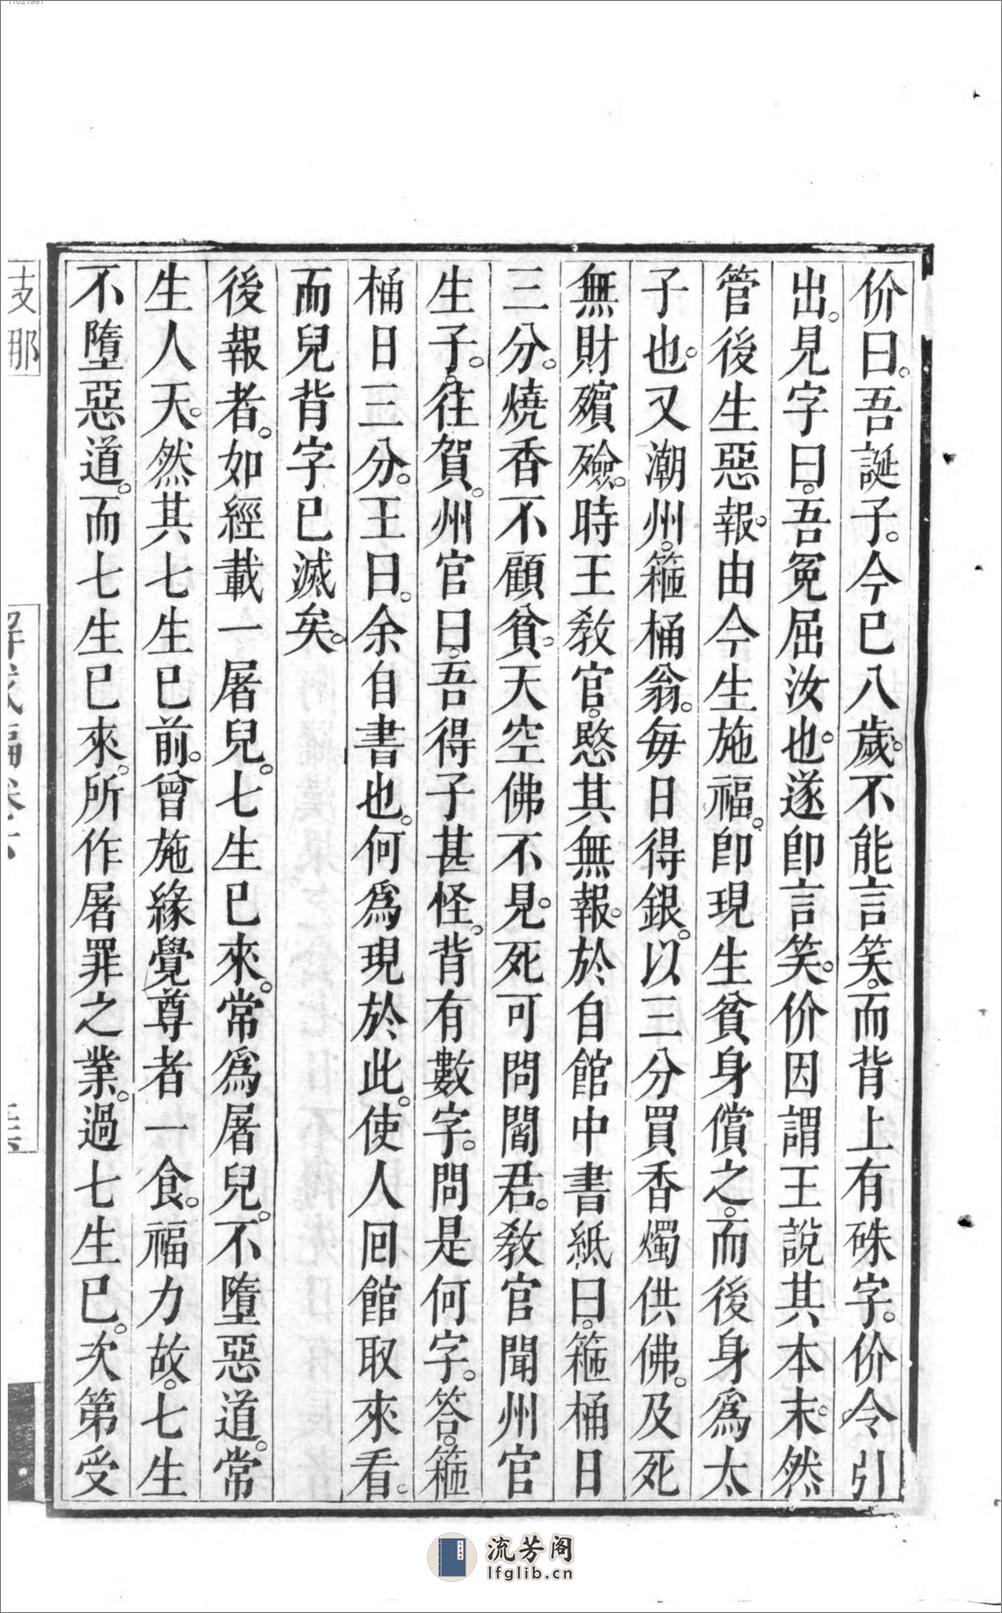 价曰。吾誕子。今已八歲。不能言笑。而背上有硃字。价令引
出。見字曰。吾冤屈汝也。遂卽言笑。价因謂王說其本末。然
管後生惡報。由今生施福。卽現生貧身償之。而後身爲太
子也。又潮州。箍桶翁。每日得銀。以三分買香燭供佛。及死
無財殯殮。時王敎官。愍其無報。於自館中書紙曰。箍桶日
三分。燒香不顧貧。天空佛不見。死可問閻君。敎官聞州官
生子。往賀。州官曰。吾得子甚怪。背有數字。問是何字。答。箍
桶日三分。王曰。余自書也。何爲現於此。使人回館取來看。
而兒背字已滅矣。
後報者。如經載一屠兒。七生已來。常爲屠兒。不墮惡道。常
生人天。然其七生已前。曾施緣覺尊者一食。福力故。七生
不墮惡道。而七生已來。所作屠罪之業。過七生已。次第受
支那
流芳阁
lfglib.cn